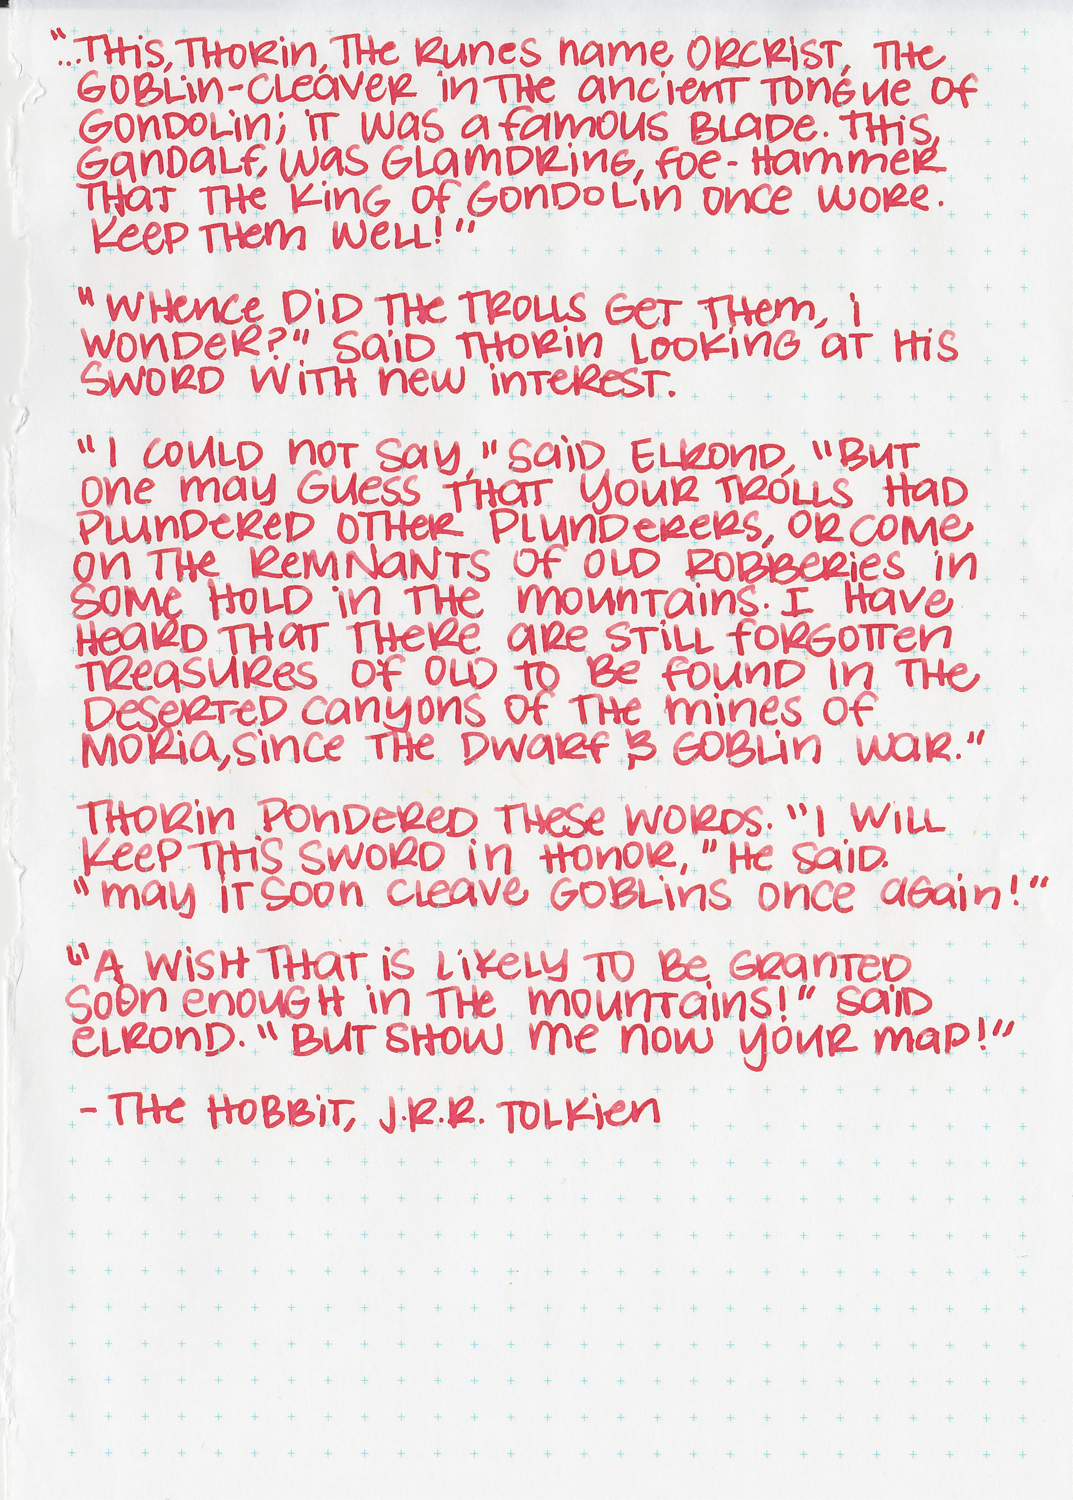 "...This, Thorin, the runes name Orcrist, the
Goblin-cleaver in the ancient tongue of
Gondolin; it was a famous blade. This,
Gandalf, was Glamdring, Foe-hammer
that the king of Gondolin once wore.
Keep them well!"
"Whence did the trolls get them, I
wonder?" said Thorin looking at his
sword with new interest.
"I could not say," said Elrond, "But
one may guess that your trolls had
plundered other plunderers, or come
on the remnants of old robberies in
some hold in the mountains. I have
heard that there are still forgotten
treasures of old to be found in the
deserted canyons of the mines of
Moria, since the dwarf & goblin war."
Thorin pondered these words. "I will
keep this sword in honor," he said.
"may it soon cleave goblins once again!"
"A wish that is likely to be granted
soon enough in the mountains!" said
Elrond. "But show me now your map!"
- The Hobbit, J.R.R. Tolkien